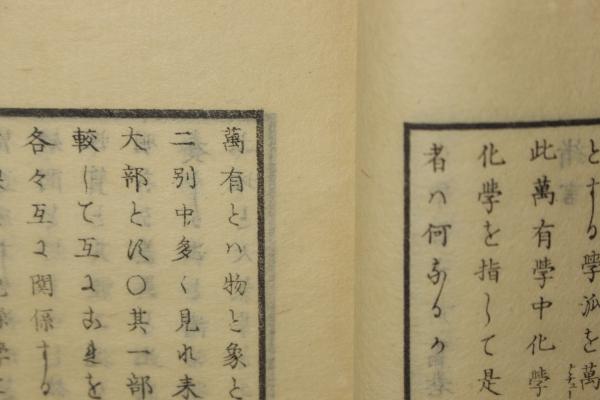 とする學派を萬
此萬有學中化學
化學を指して是
者ハ何なるか
萬有とハ物と象と
二別中多く見れ来
大部とす〇其一部
較して互にこれを
各々互に關係する